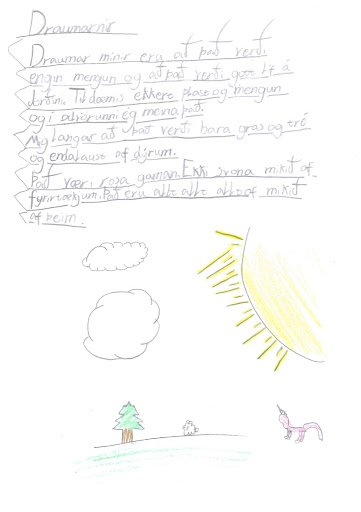 Draumarnir
Draumar mínir eru að það verði
engin mengun og að það verði gott líf á
Jörðinni. Til dæmis ekkert plast og mengun
og í sjónum ég meina það.
Mig langar að það verði bara gras og tré
og endalaust af dýrum.
Það væri rosa gaman. Ekki svona mikið af
fyrirtækjum. Það eru allt allt allt of mikið
af þeim.